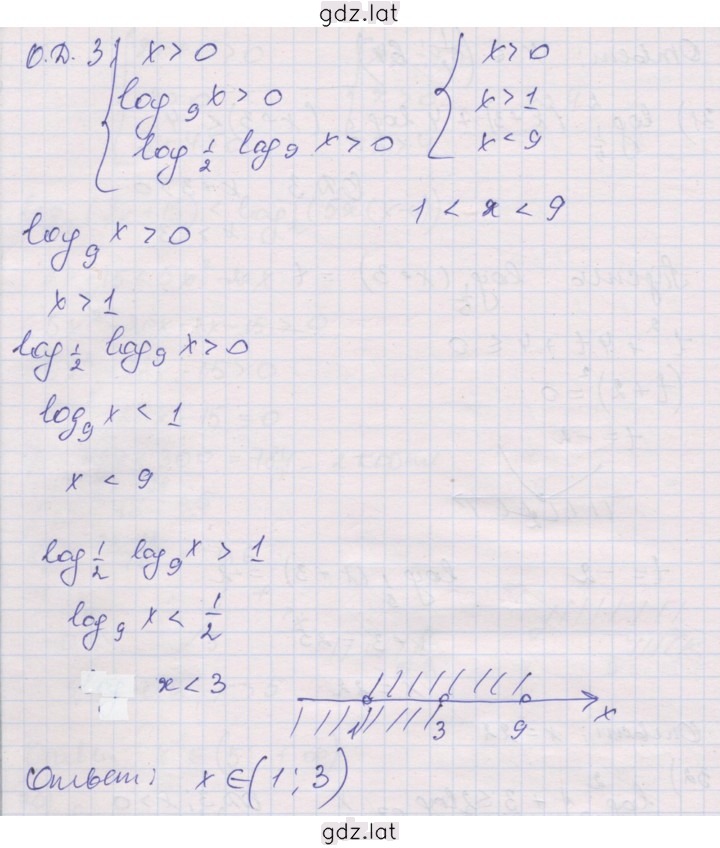 gdz.lat
О.Д.З. x > 0
log₉ x > 0
log_{1/2} log₉ x > 0
x > 0
x > 1
x < 9
1 < x < 9
log₉ x > 0
x > 1
log_{1/2} log₉ x > 0
log₉ x < 1
x < 9
log_{1/2} log₉ x > 1
log₉ x < 1/2
x < 3
1 3 9 x
Ответ: x ∈ (1; 3)
gdz.lat